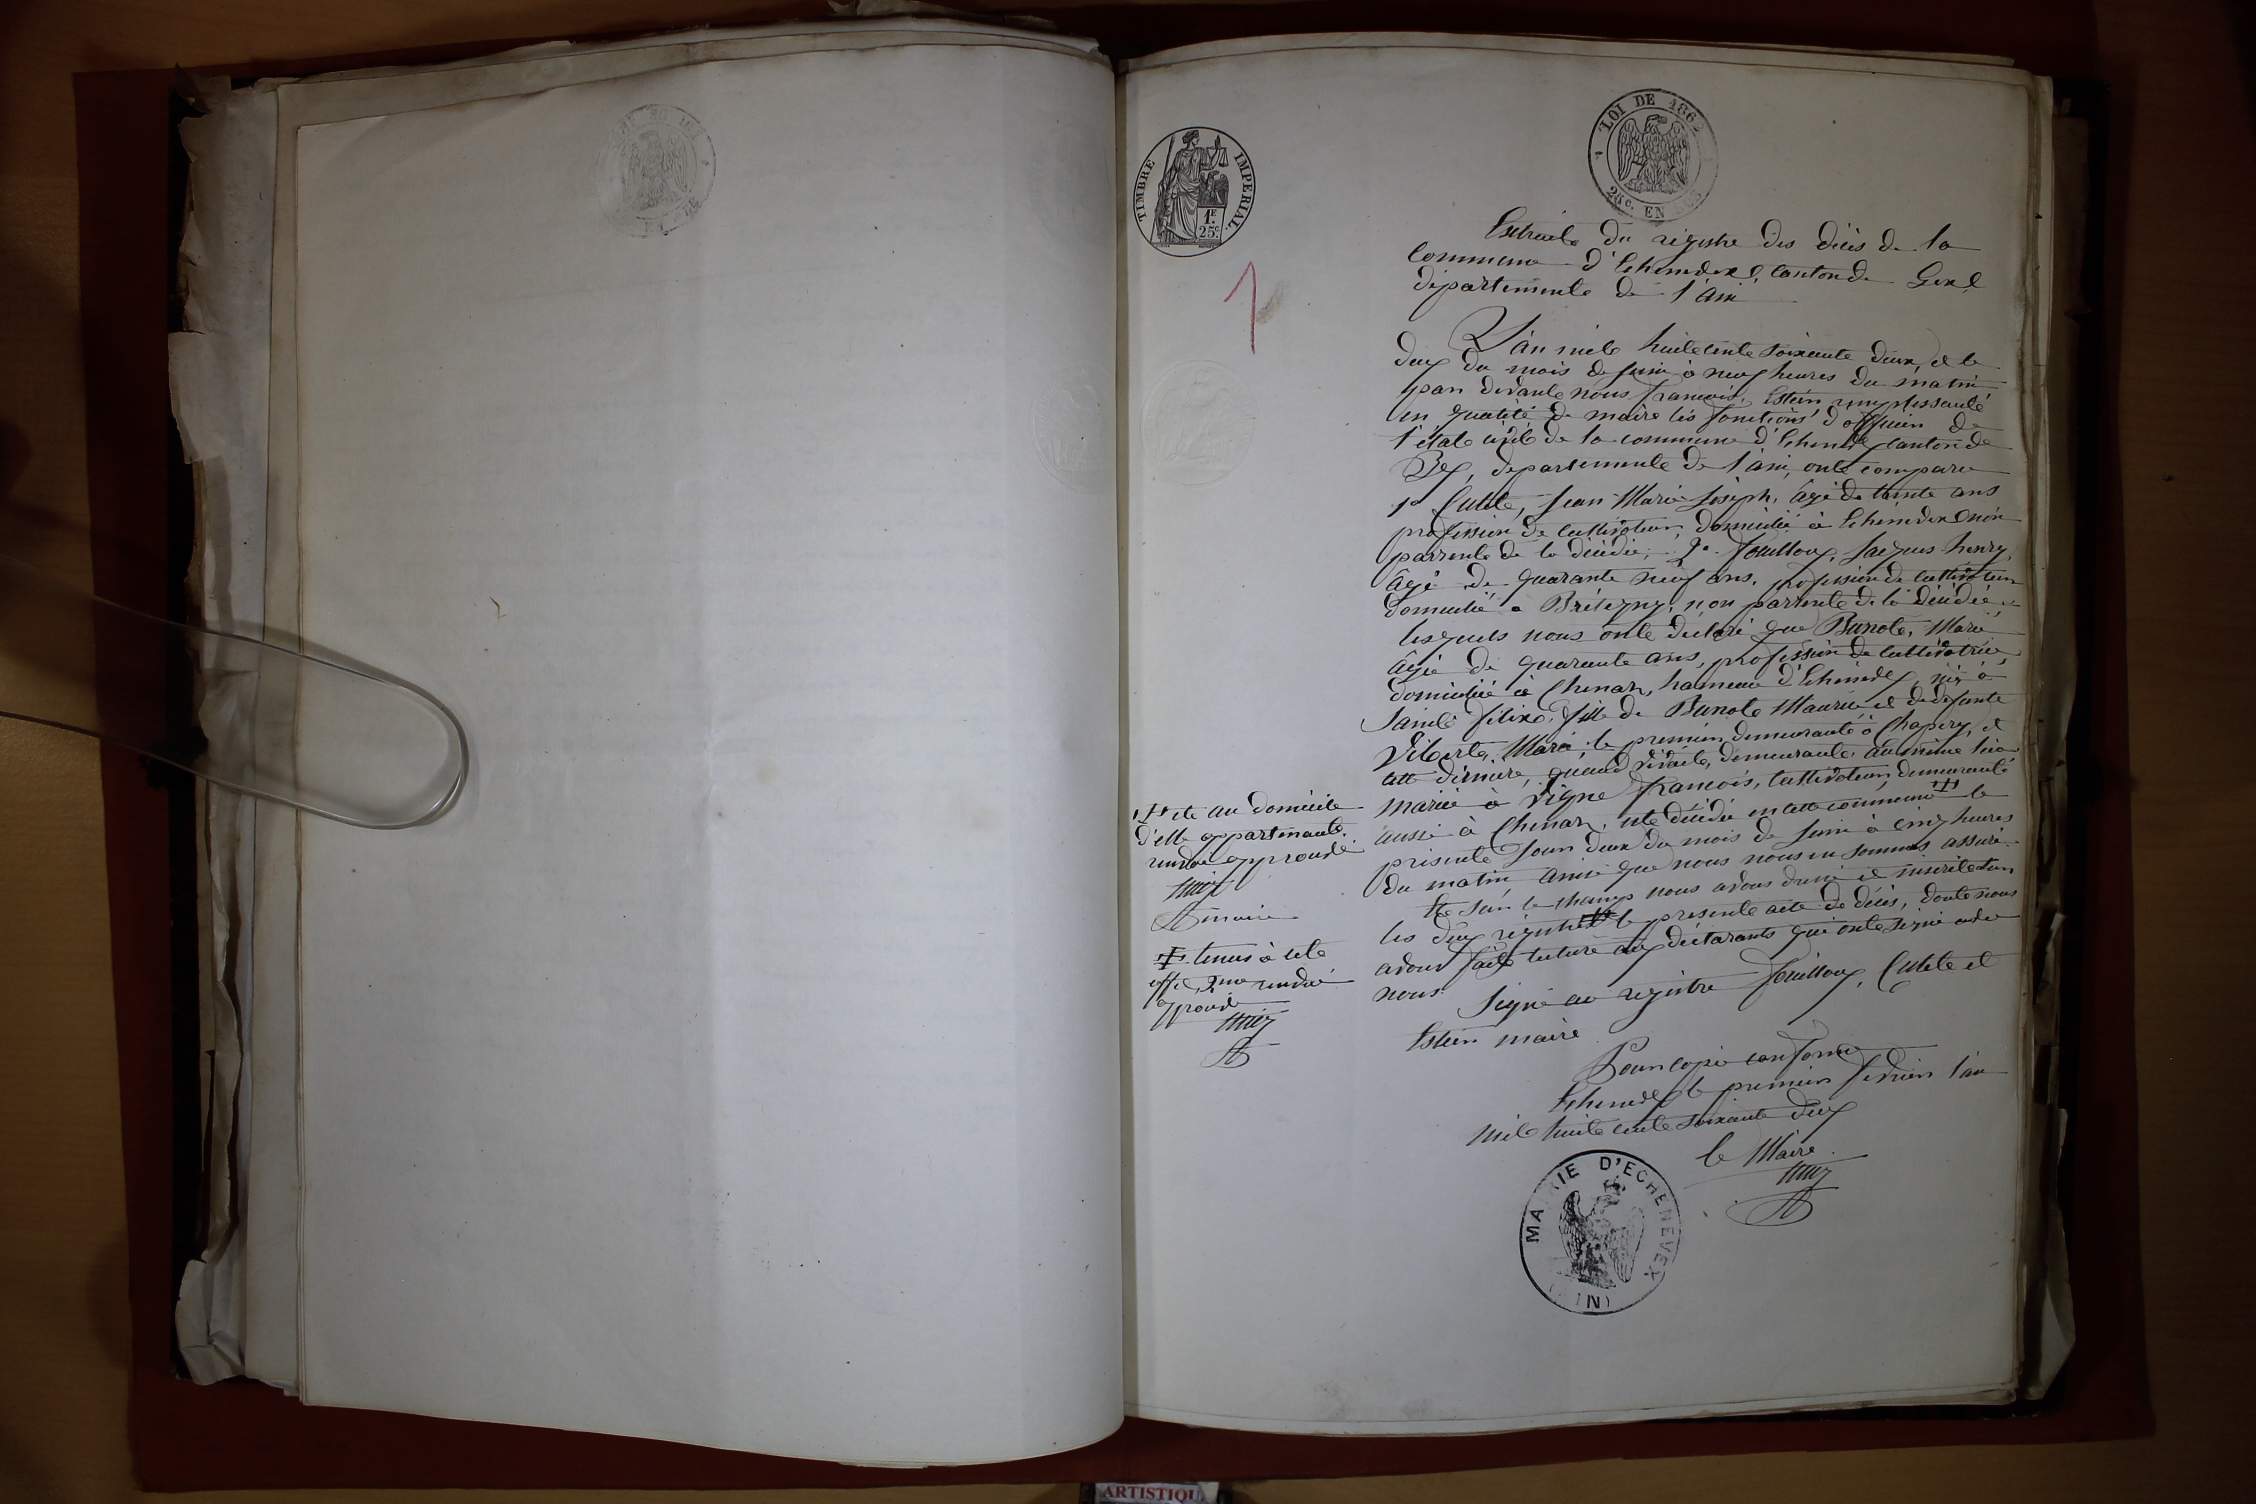 LOI DE 1862
25c. EN SUS
TIMBRE IMPERIAL
1F 25c
1
Extraite du régistre des décès de la
commune d'Echenevex, canton de Gex,
départemente de l'ain
L'an mile huitecente soixante deux, et le
deux du mois de juin à neuf heures du matin
par devante nous francois, Estein remplissante
en qualité de maire les fonctions d'officier de
l'état civile de la commune d'Echenevex canton de
Gex, départemente de l'ain, onte comparu
1° Cutete, Jean Marie Joseph, âgé de trente ans
profession de cultivateur, domicilié à Echenevex non
parrente de la décédée, 2° Fouilloux, Jacques henry,
âgé de quarante neuf ans, profession de cultivateur
domicilié a Brétigny, non parrente de la décédée
lesquels nous onte déclaré que Bunote, Marie
âgée de quarante ans, profession de cultivatrice,
domiciliée à Chenaz, hameau d'Echenevex, née à
Sainte félixe, fille de Bunote Maurice et de defunte
Viberte, Marie, le premier demeurante à Chapery, et
cette dernière, quand vivaite, demeurante au même lieu
mariée à Vigne francois, cultivateur, demeurante
aussi à Chenaz, ete décédée en cette commune le
présente jour deux du mois de juin à cinq heures
du matin ainsi que nous nous en sommes assuré.
Ete sur le champ nous avons dressé et inscrite sur
les deux régistres le présente acte de décès, donte nous
avons faite lecture aux déclarants qui onte signé avec
nous.
Signé au registre Fouilloux, Cutete et
Estein maire
Pour copie conforme
Echenevex le premier fevrier l'an
mile huite cente soixante deux
le Maire
MAIRIE D'ECHENEVEX
(AIN)
ete au domicile
d'elle appartenante.
renvoi approuvé
maire
tenus à cete
effet, renvoi
approuvé
ARTISTIQU